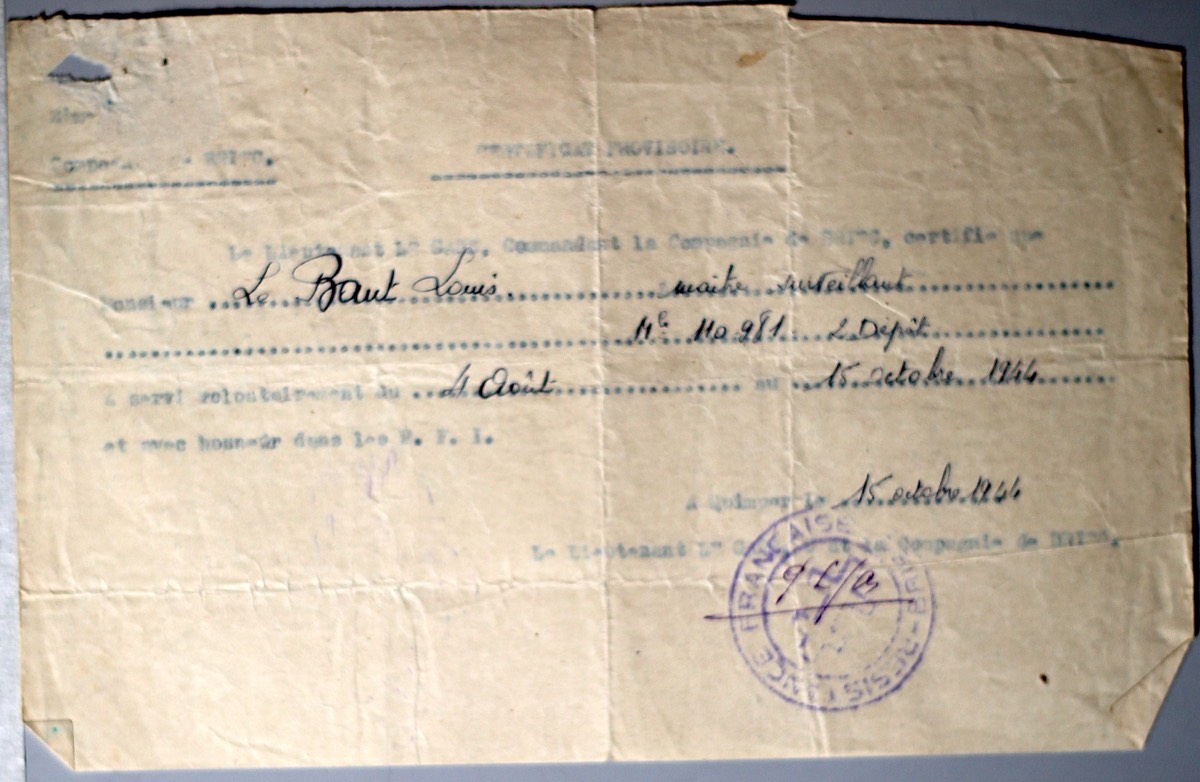 CERTIFICAT PROVISOIRE.
Le Lieutenant Commandant la Compagnie de certifie que
Monsieur Le Baut Louis. maitre surveillant
Mle 2 Dépôt
A servi volontairement du 4 Août au 15 octobre 1944
et avec honneur dans les F. F. I.
A Quimper le 15 octobre 1944
Le Lieutenant la Compagnie de
RESISTANCE FRANÇAISE